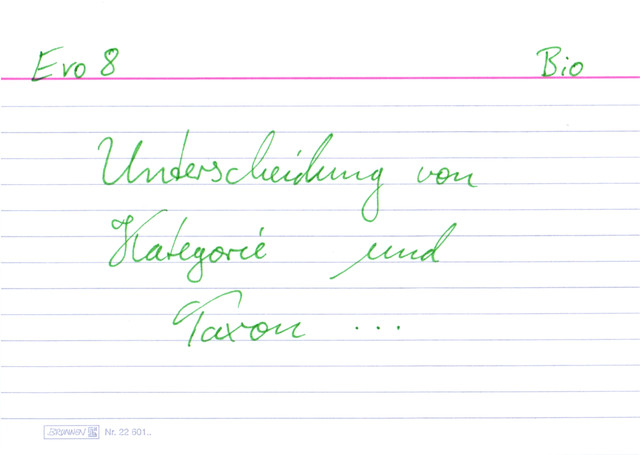 Evo 8 Bio
Unterscheidung von
Kategorie und
Taxon ...
BRUNNEN Nr. 22 601..